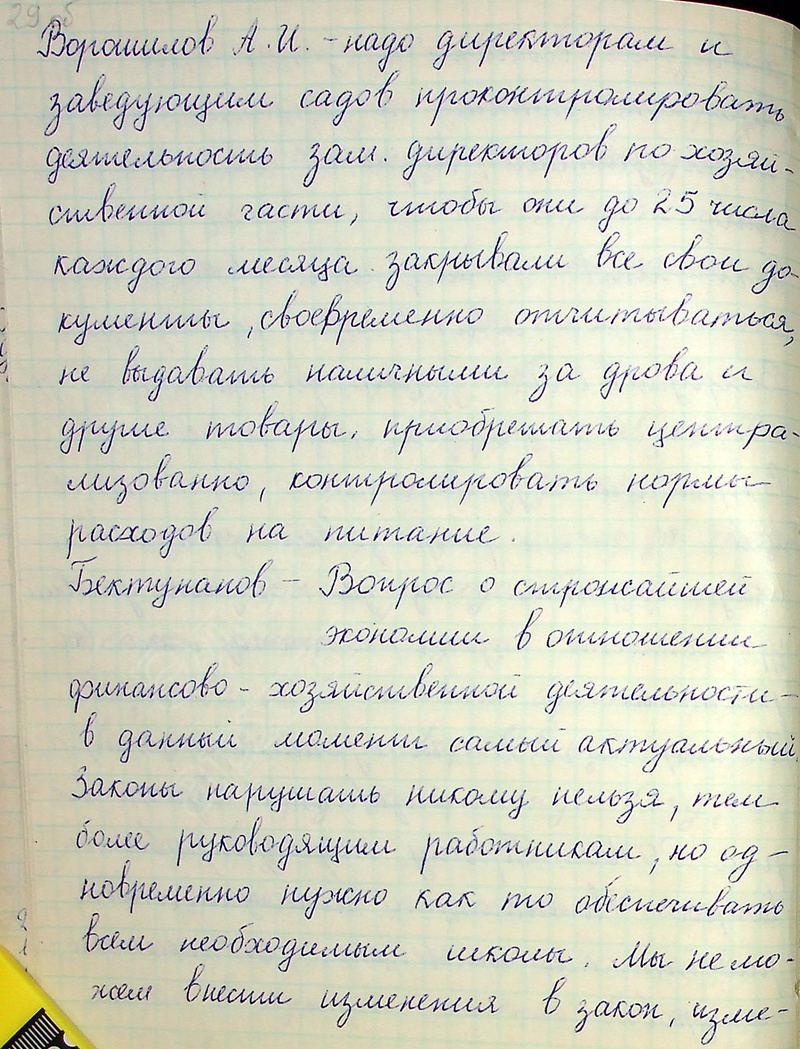 29 об
Ворошилов А.И. - надо директорам и
заведующим садов проконтролировать
деятельность зам. директоров по хозяй-
ственной части, чтобы они до 25 числа
каждого месяца закрывали все свои до-
кументы, своевременно отчитываться,
не выдавать наличными за дрова и
другие товары, приобретать центра-
лизованно, контролировать нормы
расходов на питание.
Бектупапов - Вопрос о строжайшей
экономии в отношении
финансово - хозяйственной деятельности -
в данный момент самый актуальный.
Законы нарушать никому нельзя, тем
более руководящим работникам, но од-
новременно нужно как то обеспечивать
всем необходимым школы. Мы не мо-
жем внести изменения в закон, изме-